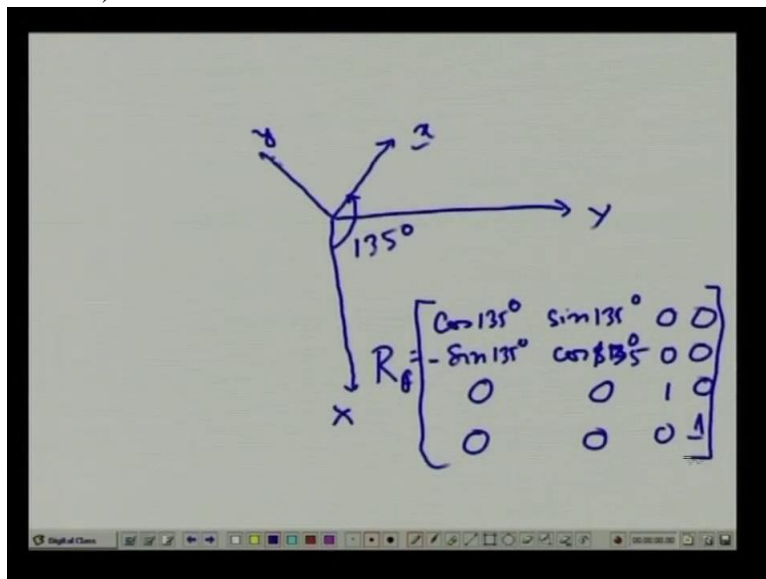 y x
Y
135°
X
Rθ = [ cos135° sin135° 0 0
-sin135° cos135° 0 0
0 0 1 0
0 0 0 1 ]
Digital Class 00:00:00:00